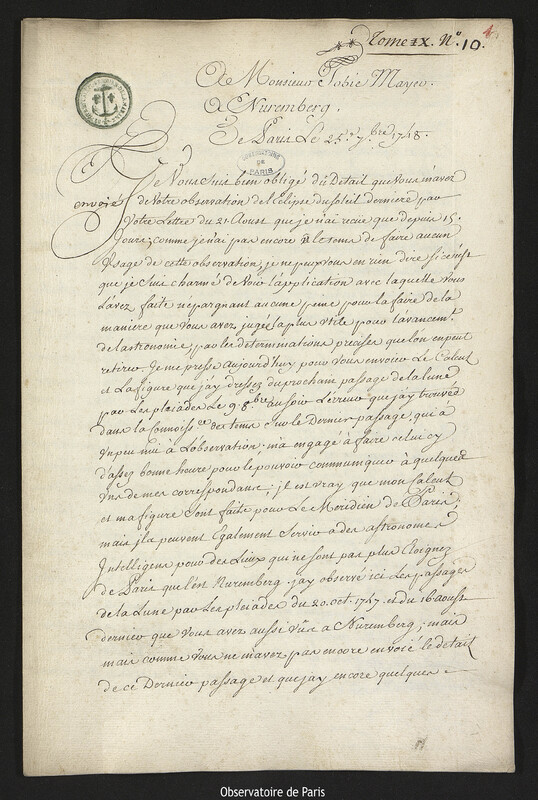 4.
Tome IX. N.° 10.
A Monsieur Tobie Mayer
A Nuremberg.
De Paris Le 25.e 7.bre 1748.
OBSERVATOIRE DE PARIS
envoié
Je Vous Suis bien obligé du Detail que Vous m'avez
de Votre observation de l'eclipse du soleil derniere par
Votre Lettre du 21 Aoust que je n'ai recue que depuis 15.
Jours; comme je n'ai pas encore le tems de faire aucun
Usage de cette observation, je ne peux vous en rien dire si ce n'est
que je suis charmé de Voir l'application avec laquelle Vous
L'avez faite n'épargnant aucune peine pour la faire de la
maniere que Vous avez jugé la plus Utile pour l'avancem.t
de l'astronomie, par les determinations precises que l'on en peut
retirer. Je me presse aujourd'huy pour Vous envoier Le Calcul
et La figure que j'ay dressez du prochain passage de la lune
par Les pleiades Le 9. 8.bre au soir L'erreur que j'ay trouvée
dans la Connoiss.ce des tems sur le Dernier passage, qui a
Un peu nui à L'observation, m'a engagé à faire celui cy
d'assez bonne heure pour le pouvoir communiquer à quelques
Uns de mes correspondans; il est vray que mon Calcul
et ma figure Sont faits pour Le Meridien de Paris,
mais ils peuvent Egalement Servir à des astronomes
Intelligens pour des Lieux qui ne sont pas plus Eloignez
de Paris que l'est Nuremberg. j'ay observé ici Les passages
de la Lune par Les pleiades du 20. oct. 1747. et du 16 aoust
dernier que Vous avez aussi Vûs a Nuremberg; mais
mais comme Vous ne m'avez pas encore envoié le detail
de ce Dernier passage et que j'ay encore quelques
Observatoire de Paris